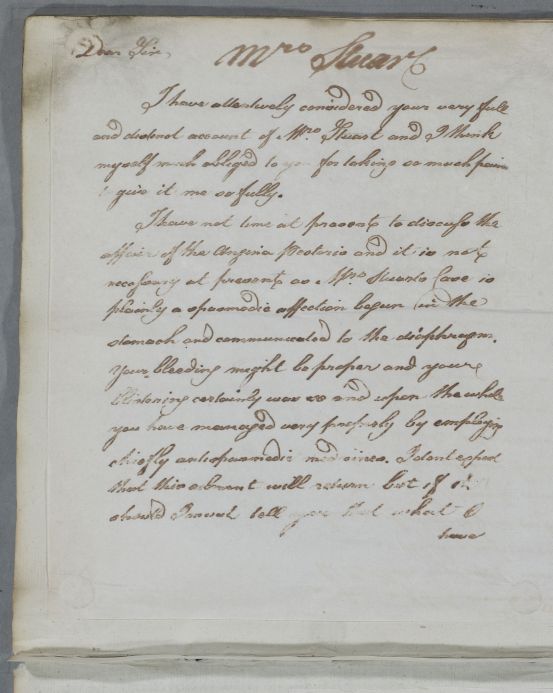 Dear Sir,
Mrs Stuart
I have attentively considered your very full
and distinct account of Mrs Stuart and I think
myself much obliged to you for taking so much pain
to give it me so fully.
I have not time at present to discuss the
affair of the Angina Pectoris and it is not
necessary at present as Mrs Stuarts Case is
plainly a spasmodic affection begun in the
stomach and communicated to the diaphragm.
Your bleeding might be proper and your
blistering certainly was so and upon the whole
you have managed very properly by employing
chiefly antispasmodic medicines. I dont expect
that this will return but if it
should I must tell you that what I
have